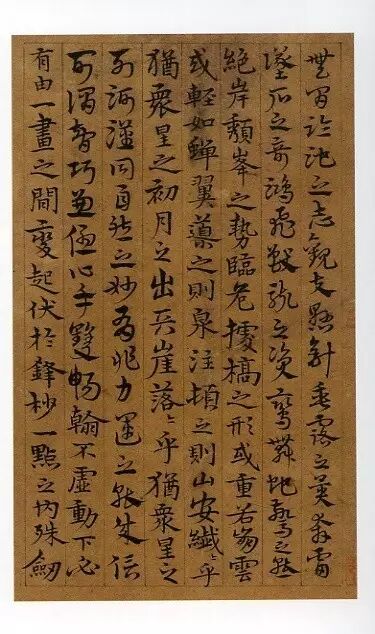 無間臨池之志觀夫懸針垂露之異奔雷
墜石之奇鴻飛獸駭之資鸞舞蛇驚之態
絕岸頹峯之勢臨危據槁之形或重若崩雲
或輕如蟬翼導之則泉注頓之則山安纖〻乎
猶眾星之初月之出天崖落〻乎猶眾星之
列河漢同自然之妙有非力運之能成信
可謂智巧兼優心手雙暢翰不虛動下必
有由一畫之間變起伏於鋒杪一點之內殊衄